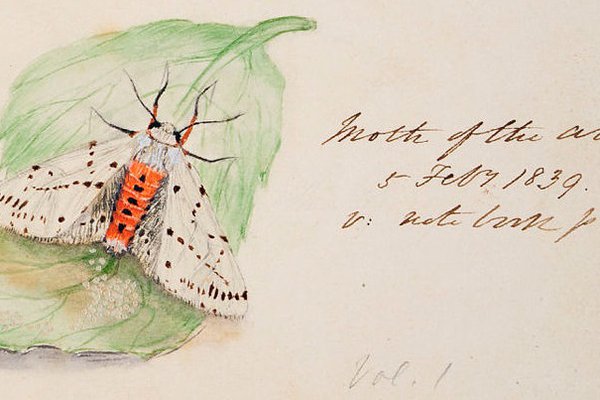 Moth of the
5 Feby 1839.
v: note book p
Vol. 1